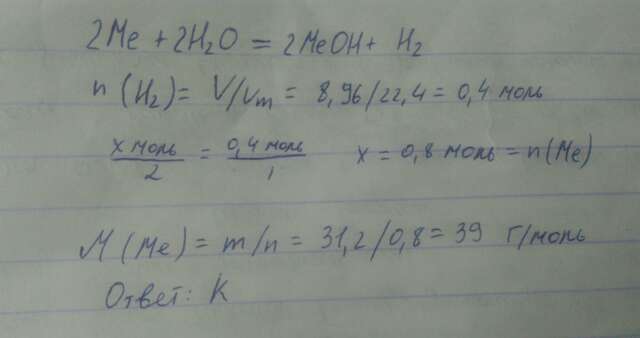 2Me + 2H₂O = 2MeOH + H₂
n (H₂) = V/Vm = 8,96/22,4 = 0,4 моль
x моль/2 = 0,4 моль/1 x = 0,8 моль = n(Me)
M (Me) = m/n = 31,2/0,8 = 39 г/моль
Ответ: K